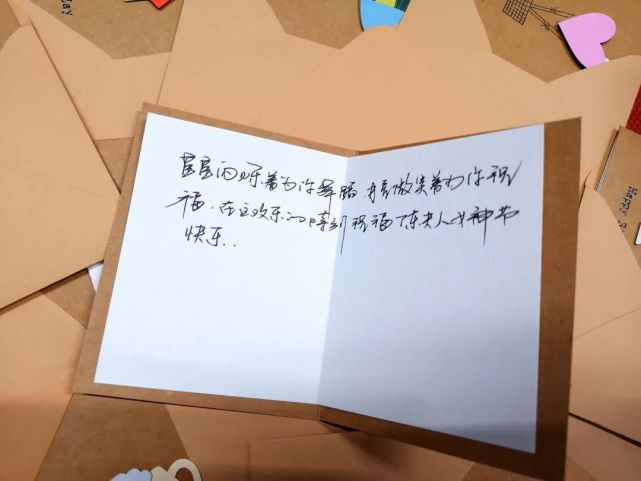 星星闪烁着为你舞蹈.月亮微笑着为你祝
福.在这欢乐的时刻祝福陈夫人女神节
快乐..
Happy
Happy